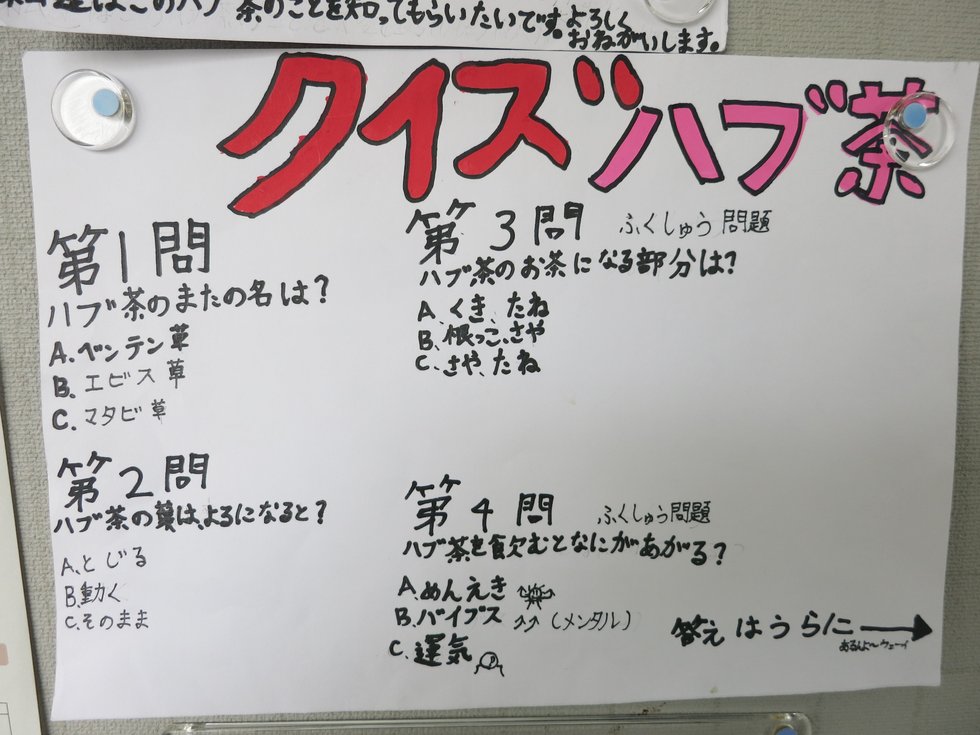 はこのハブ茶のことを知ってもらいたいです。よろしく
おねがいします。
クイズハブ茶
第1問
ハブ茶のまたの名は?
A.ベンテン草
B.エビス草
C.マタビ草
第2問
ハブ茶の葉は、よるになると?
A.とじる
B.動く
C.そのまま
第3問 ふくしゅう問題
ハブ茶のお茶になる部分は?
A.くき、たね
B.根っこ、さや
C.さや、たね
第4問 ふくしゅう問題
ハブ茶を飲むとなにがあがる?
A.めんえき
B.バイブス (メンタル)
C.運気
答えはうらに→
あるんよ〜ウェーイ